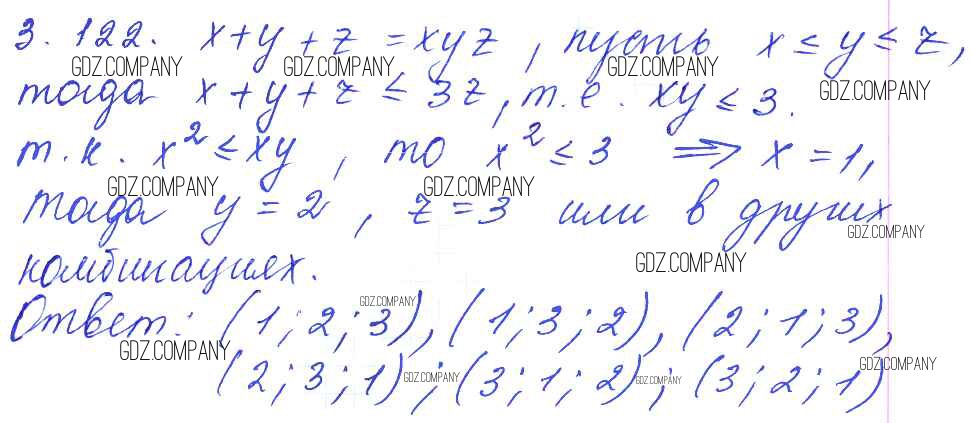 3. 122. x+y+z = xyz, пусть x ≤ y ≤ z,
GDZ.COMPANY GDZ.COMPANY GDZ.COMPANY
тогда x+y+z ≤ 3z, т.е. xy ≤ 3.
GDZ.COMPANY
т.к. x² ≤ xy, то x² ≤ 3 ⇒ x = 1,
GDZ.COMPANY GDZ.COMPANY
тогда y = 2, z = 3 или в других
GDZ.COMPANY
комбинациях.
GDZ.COMPANY
Ответ: (1; 2; 3), (1; 3; 2), (2; 1; 3),
GDZ.COMPANY
GDZ.COMPANY
(2; 3; 1); (3; 1; 2); (3; 2; 1)
GDZ.COMPANY GDZ.COMPANY GDZ.COMPANY